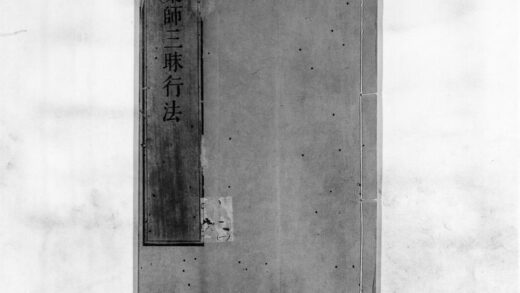 師三昧行法